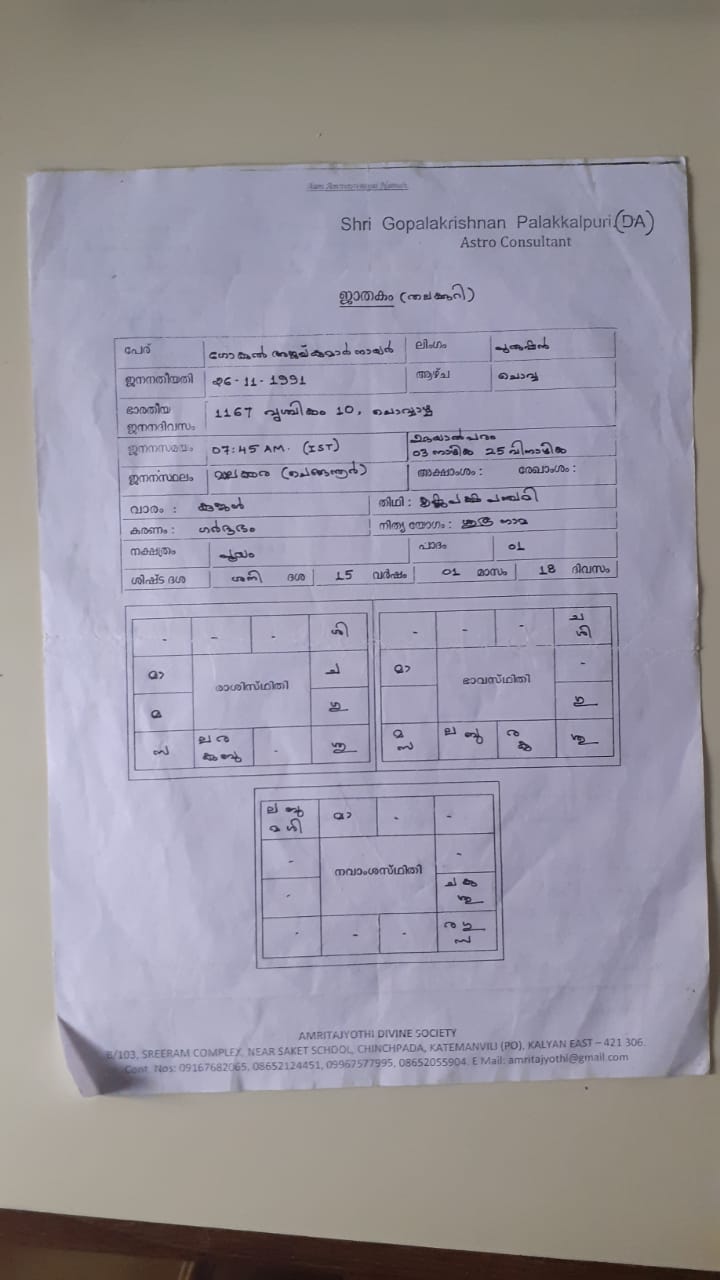 Shri Gopalakrishnan Palakkalpuri.(DA)
Astro Consultant
ജാതകം (തലക്കുറി)
പേര് ഗോകുൽ അജയ്കുമാർ നായർ ലിംഗം പുരുഷൻ
ജനനതീയതി 26-11-1991 ആഴ്ച ചൊവ്വ
ഭാരതീയ ജനനദിവസം 1167 വൃശ്ചികം 10, ചൊവ്വാഴ്ച
ജനനസമയം 07:45 AM. (IST) ഉദയാൽപരം 03 നാഴിക 25 വിനാഴിക
ജനനസ്ഥലം (ചെങ്ങന്നൂർ) അക്ഷാംശം : രേഖാംശം :
വാരം : കുജൻ തിഥി :
കരണം : ഗർദ്ദഭം നിത്യ യോഗം :
നക്ഷത്രം പൂയം പാദം 01
ശിഷ്ട ദശ ശനി ദശ 15 വർഷം 01 മാസം 18 ദിവസം
- - - ശി
മാ രാശിസ്ഥിതി ച
മ ഗു
സ ല ര കു ബു - ശു
- - - ച ശി
മാ ഭാവസ്ഥിതി -
ഗു
മ സ ല ബു ര കു ശു
ല ബു മ ശി മാ - -
- നവാംശസ്ഥിതി -
- ച കു ശു
- - - ര ഗു സ
AMRITAJYOTHI DIVINE SOCIETY
B/103, SREERAM COMPLEX, NEAR SAKET SCHOOL, CHINCHPADA, KATEMANVILI (PO), KALYAN EAST – 421 306.
Cont. Nos: 09167682065, 08652124451, 09967577995, 08652055904. E Mail: amritajyothi@gmail.com